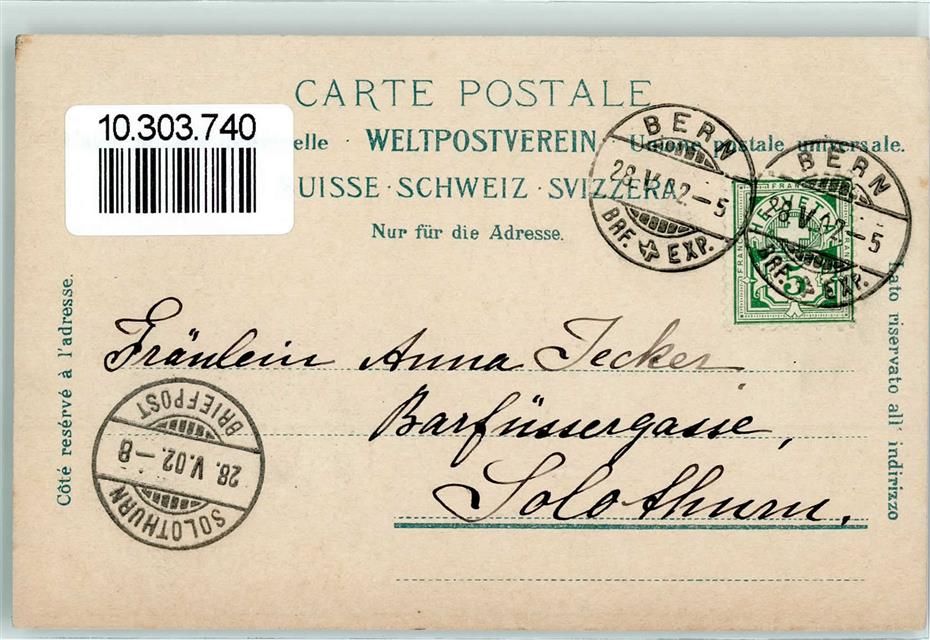 CARTE POSTALE
10.303.740
elle · WELTPOSTVEREIN · Unione postale universale.
UISSE · SCHWEIZ · SVIZZERA
Nur für die Adresse.
BERN
28.V.02.–5
BRF. EXP.
BERN
8.V.02.–5
BRF. EXP.
FRANCO
HELVETIA
5
Côté resérvé à l'adresse.
Lato riservato all' indirizzo
Fräulein Anna Jecker
Barfüssergasse,
Solothurn.
BRIEFPOST
28.V.02.–8
SOLOTHURN